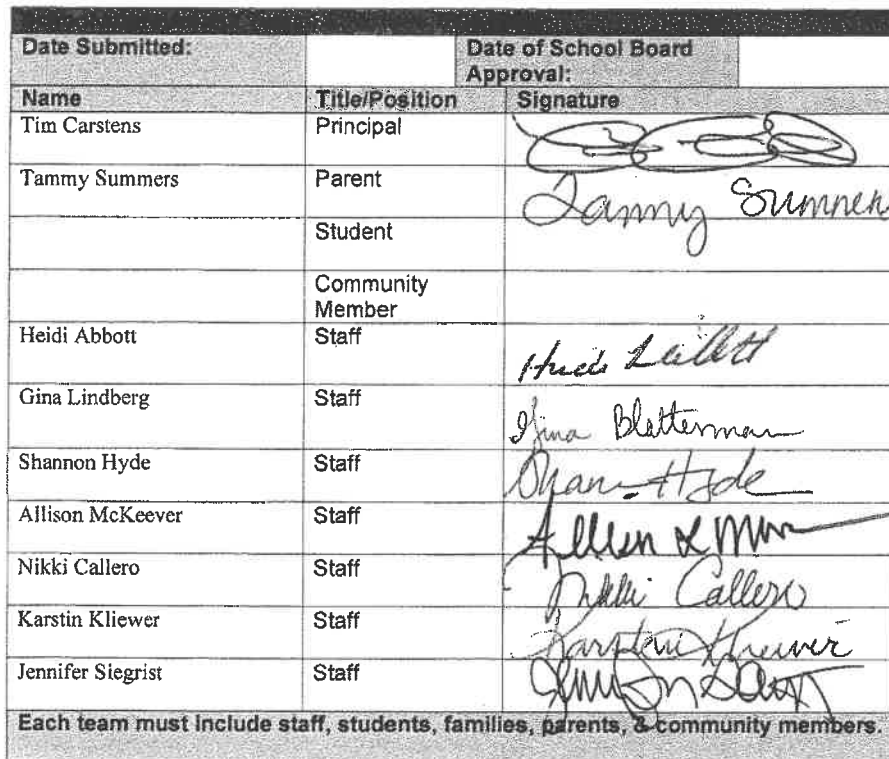 Date Submitted: Date of School Board
Approval:
Name Title/Position Signature
Tim Carstens Principal
Tammy Summers Parent Tammy Summers
Student
Community
Member
Heidi Abbott Staff
Gina Lindberg Staff Gina Blatterman
Shannon Hyde Staff Hyde
Allison McKeever Staff
Nikki Callero Staff Nikki Callero
Karstin Kliewer Staff
Jennifer Siegrist Staff
Each team must include staff, students, families, parents, & community members.